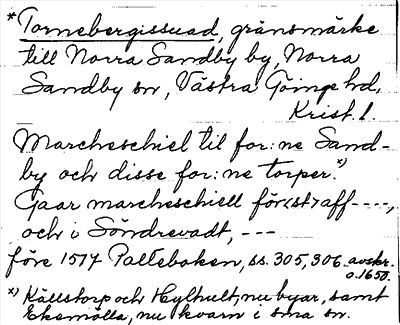 *Tornebergissuad, gränsmärke
till Norra Sandby by, Norra
Sandby sn, Västra Göinge hd,
Krist. l.
Marcheschiel til for:ne Sand-
by och disse for:ne torper.*)
Gaar marcheschiell för(st) aff ----,
och i Söndrevadt, ---
före 1577 Palteboken, ss. 305, 306 avskr.
o. 1650.
*) Källstorp och Hylhult, nu byar, samt
Ekemölla, nu kvarn i sma sn.